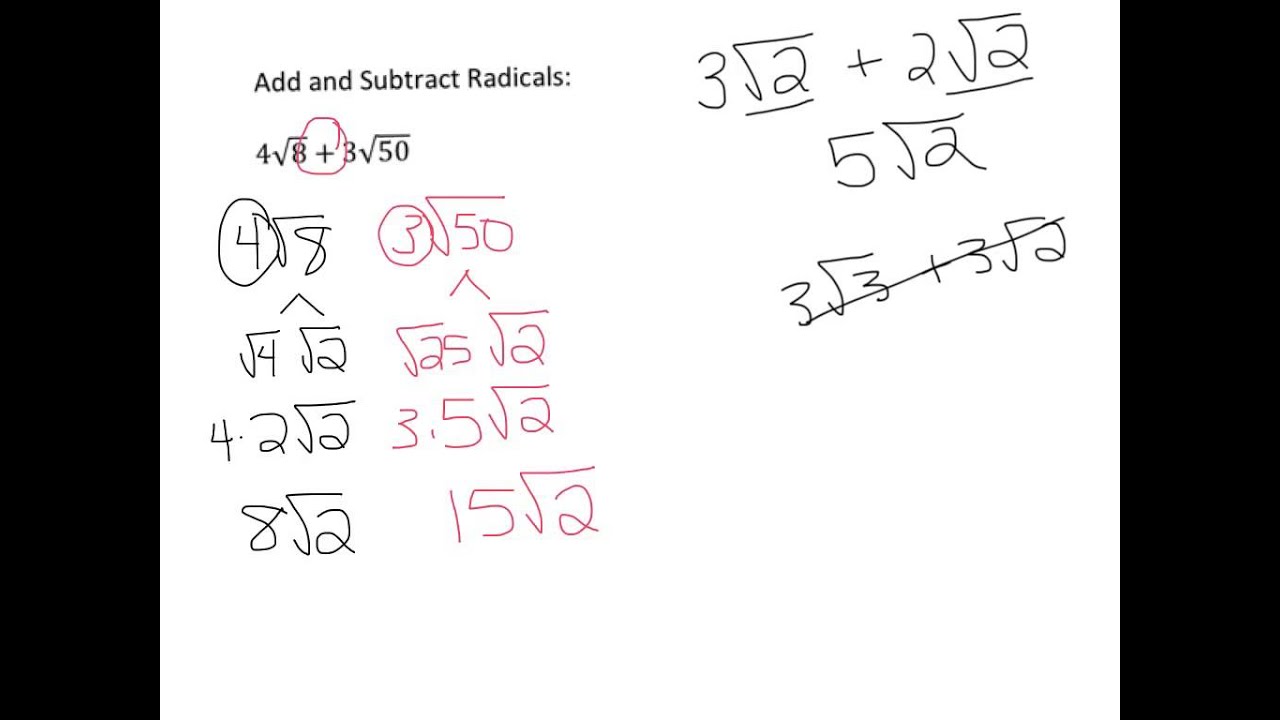 Add and Subtract Radicals:
4√8 + 3√50
4√8 3√50
√4 √2 √25 √2
4·2√2 3·5√2
8√2 15√2
3√2 + 2√2
5√2
3√3 + 3√2